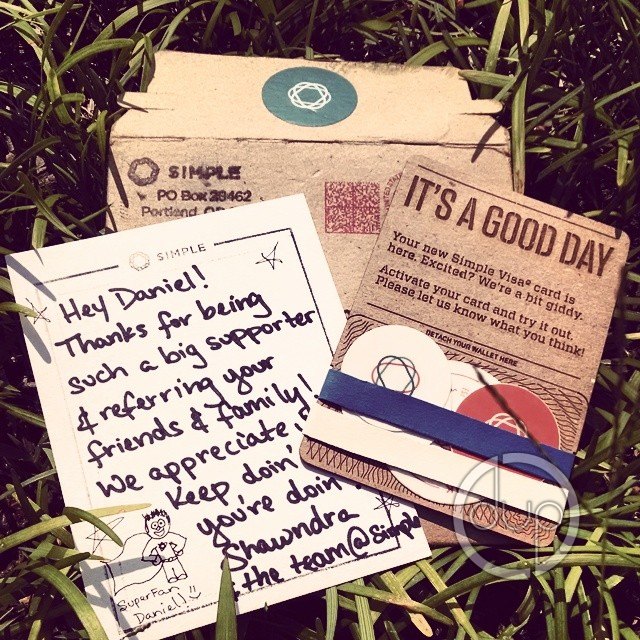 SIMPLE
PO Box 29462
Portland, OR
SIMPLE
Hey Daniel!
Thanks for being
such a big supporter
& referring your
friends & family!
We appreciate
Keep doin'
you're doin'
Shawndra
the team@Simple
Superfan
Daniel!
IT'S A GOOD DAY
Your new Simple Visa® card is
here. Excited? We're a bit giddy.
Activate your card and try it out.
Please let us know what you think!
DETACH YOUR WALLET HERE
dyp